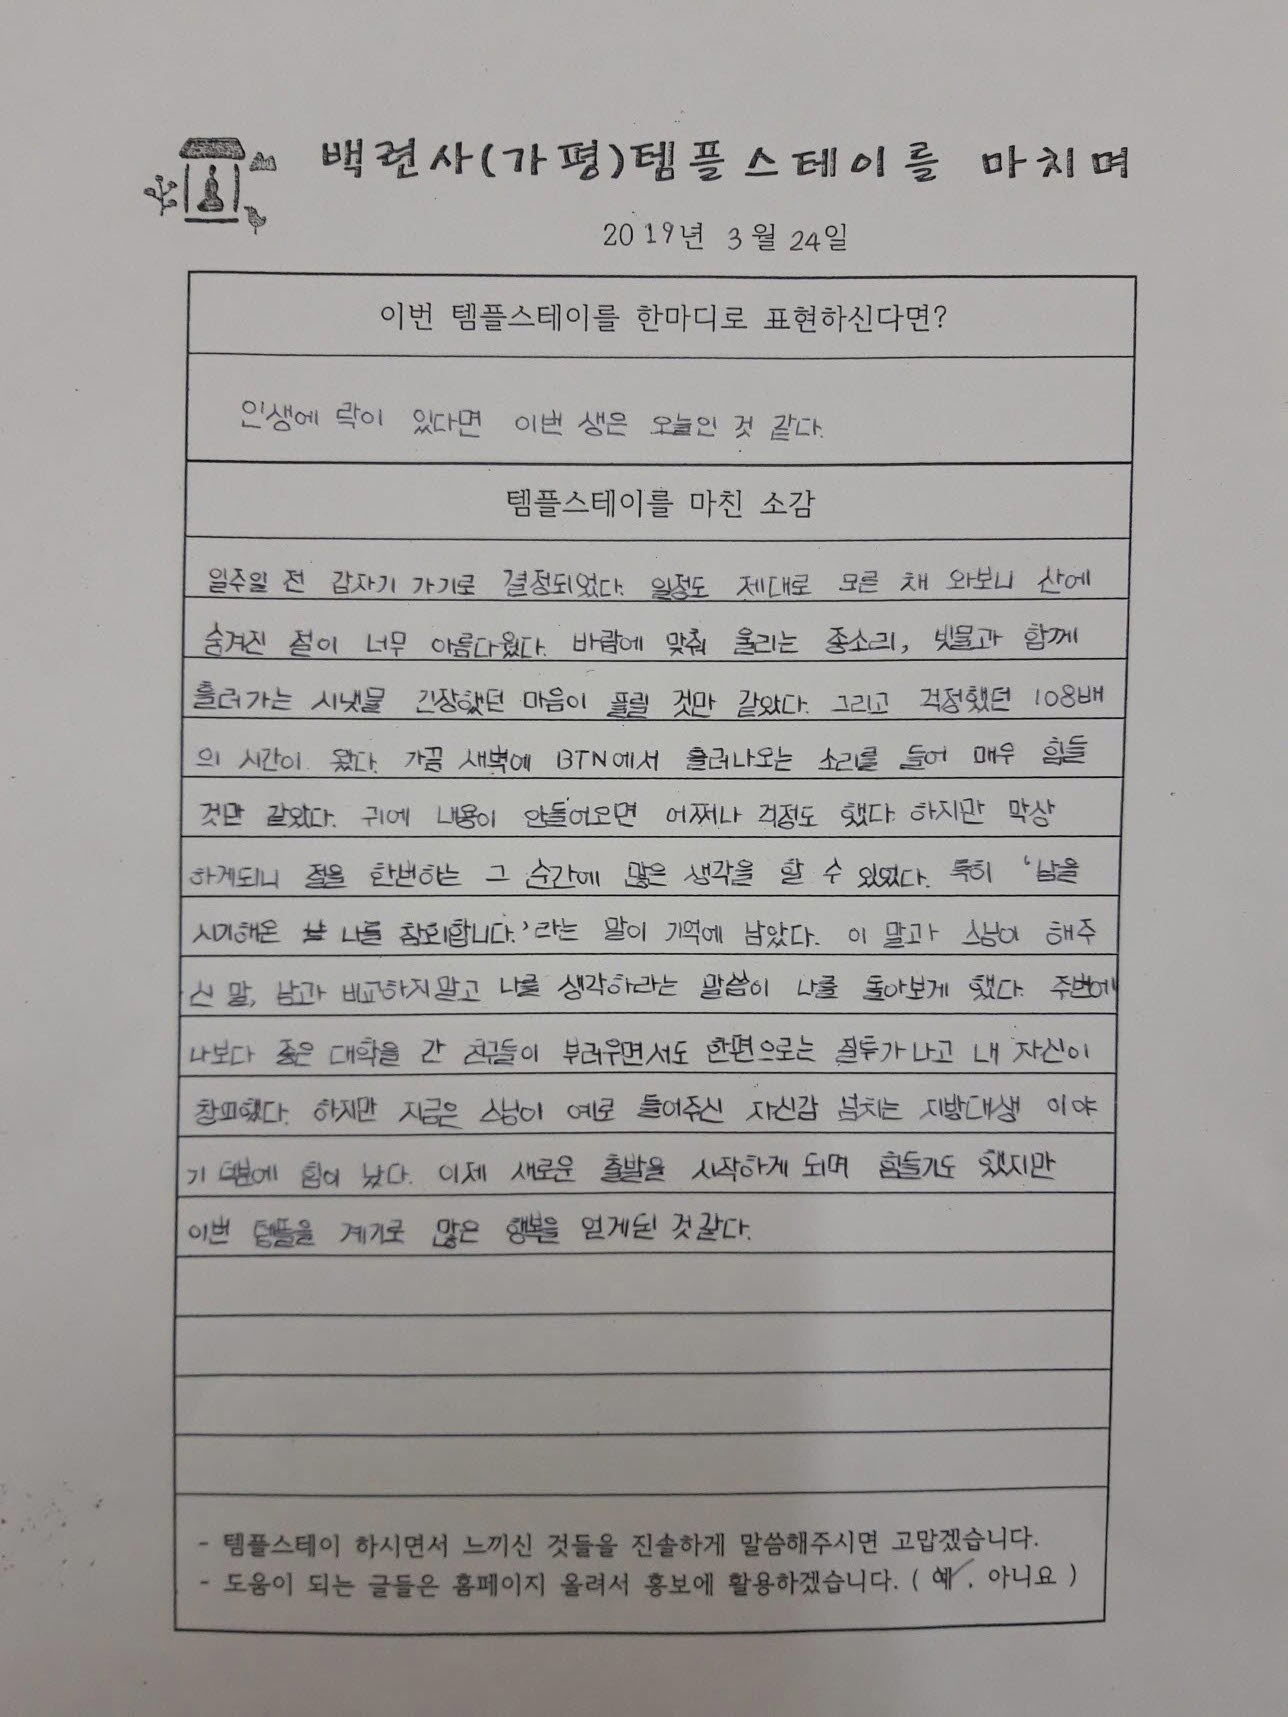 백련사(가평)템플스테이를 마치며
2019년 3월 24일
이번 템플스테이를 한마디로 표현하신다면?
인생에 락이 있다면 이번 생은 오늘인 것 같다.
템플스테이를 마친 소감
일주일 전 갑자기 가기로 결정되었다. 일정도 제대로 모른 채 와보니 산에
숨겨진 절이 너무 아름다웠다. 바람에 맞춰 울리는 종소리, 빗물과 함께
흘러가는 시냇물 긴장했던 마음이 풀릴 것만 같았다. 그리고 걱정했던 108배
의 시간이 왔다. 가끔 새벽에 BTN에서 흘러나오는 소리를 들어 매우 힘들
것만 같았다. 귀에 내용이 안들어오면 어쩌나 걱정도 했다. 하지만 막상
하게되니 절을 한번하는 그 순간에 많은 생각을 할 수 있었다. 특히 '남을
시기해온 나를 참회합니다.'라는 말이 기억에 남았다. 이 말과 스님이 해주
신 말, 남과 비교하지말고 나를 생각하라는 말씀이 나를 돌아보게 했다. 주변에
나보다 좋은 대학을 간 친구들이 부러우면서도 한편으로는 질투가 나고 내 자신이
창피했다. 하지만 지금은 스님이 예로 들어주신 자신감 넘치는 지방대생 이야
기 덕분에 힘이 났다. 이제 새로운 출발을 시작하게 되며 힘들기도 했지만
이번 템플을 계기로 많은 행복을 얻게된 것 같다.
- 템플스테이 하시면서 느끼신 것들을 진솔하게 말씀해주시면 고맙겠습니다.
- 도움이 되는 글들은 홈페이지 올려서 홍보에 활용하겠습니다. ( 예 , 아니요 )